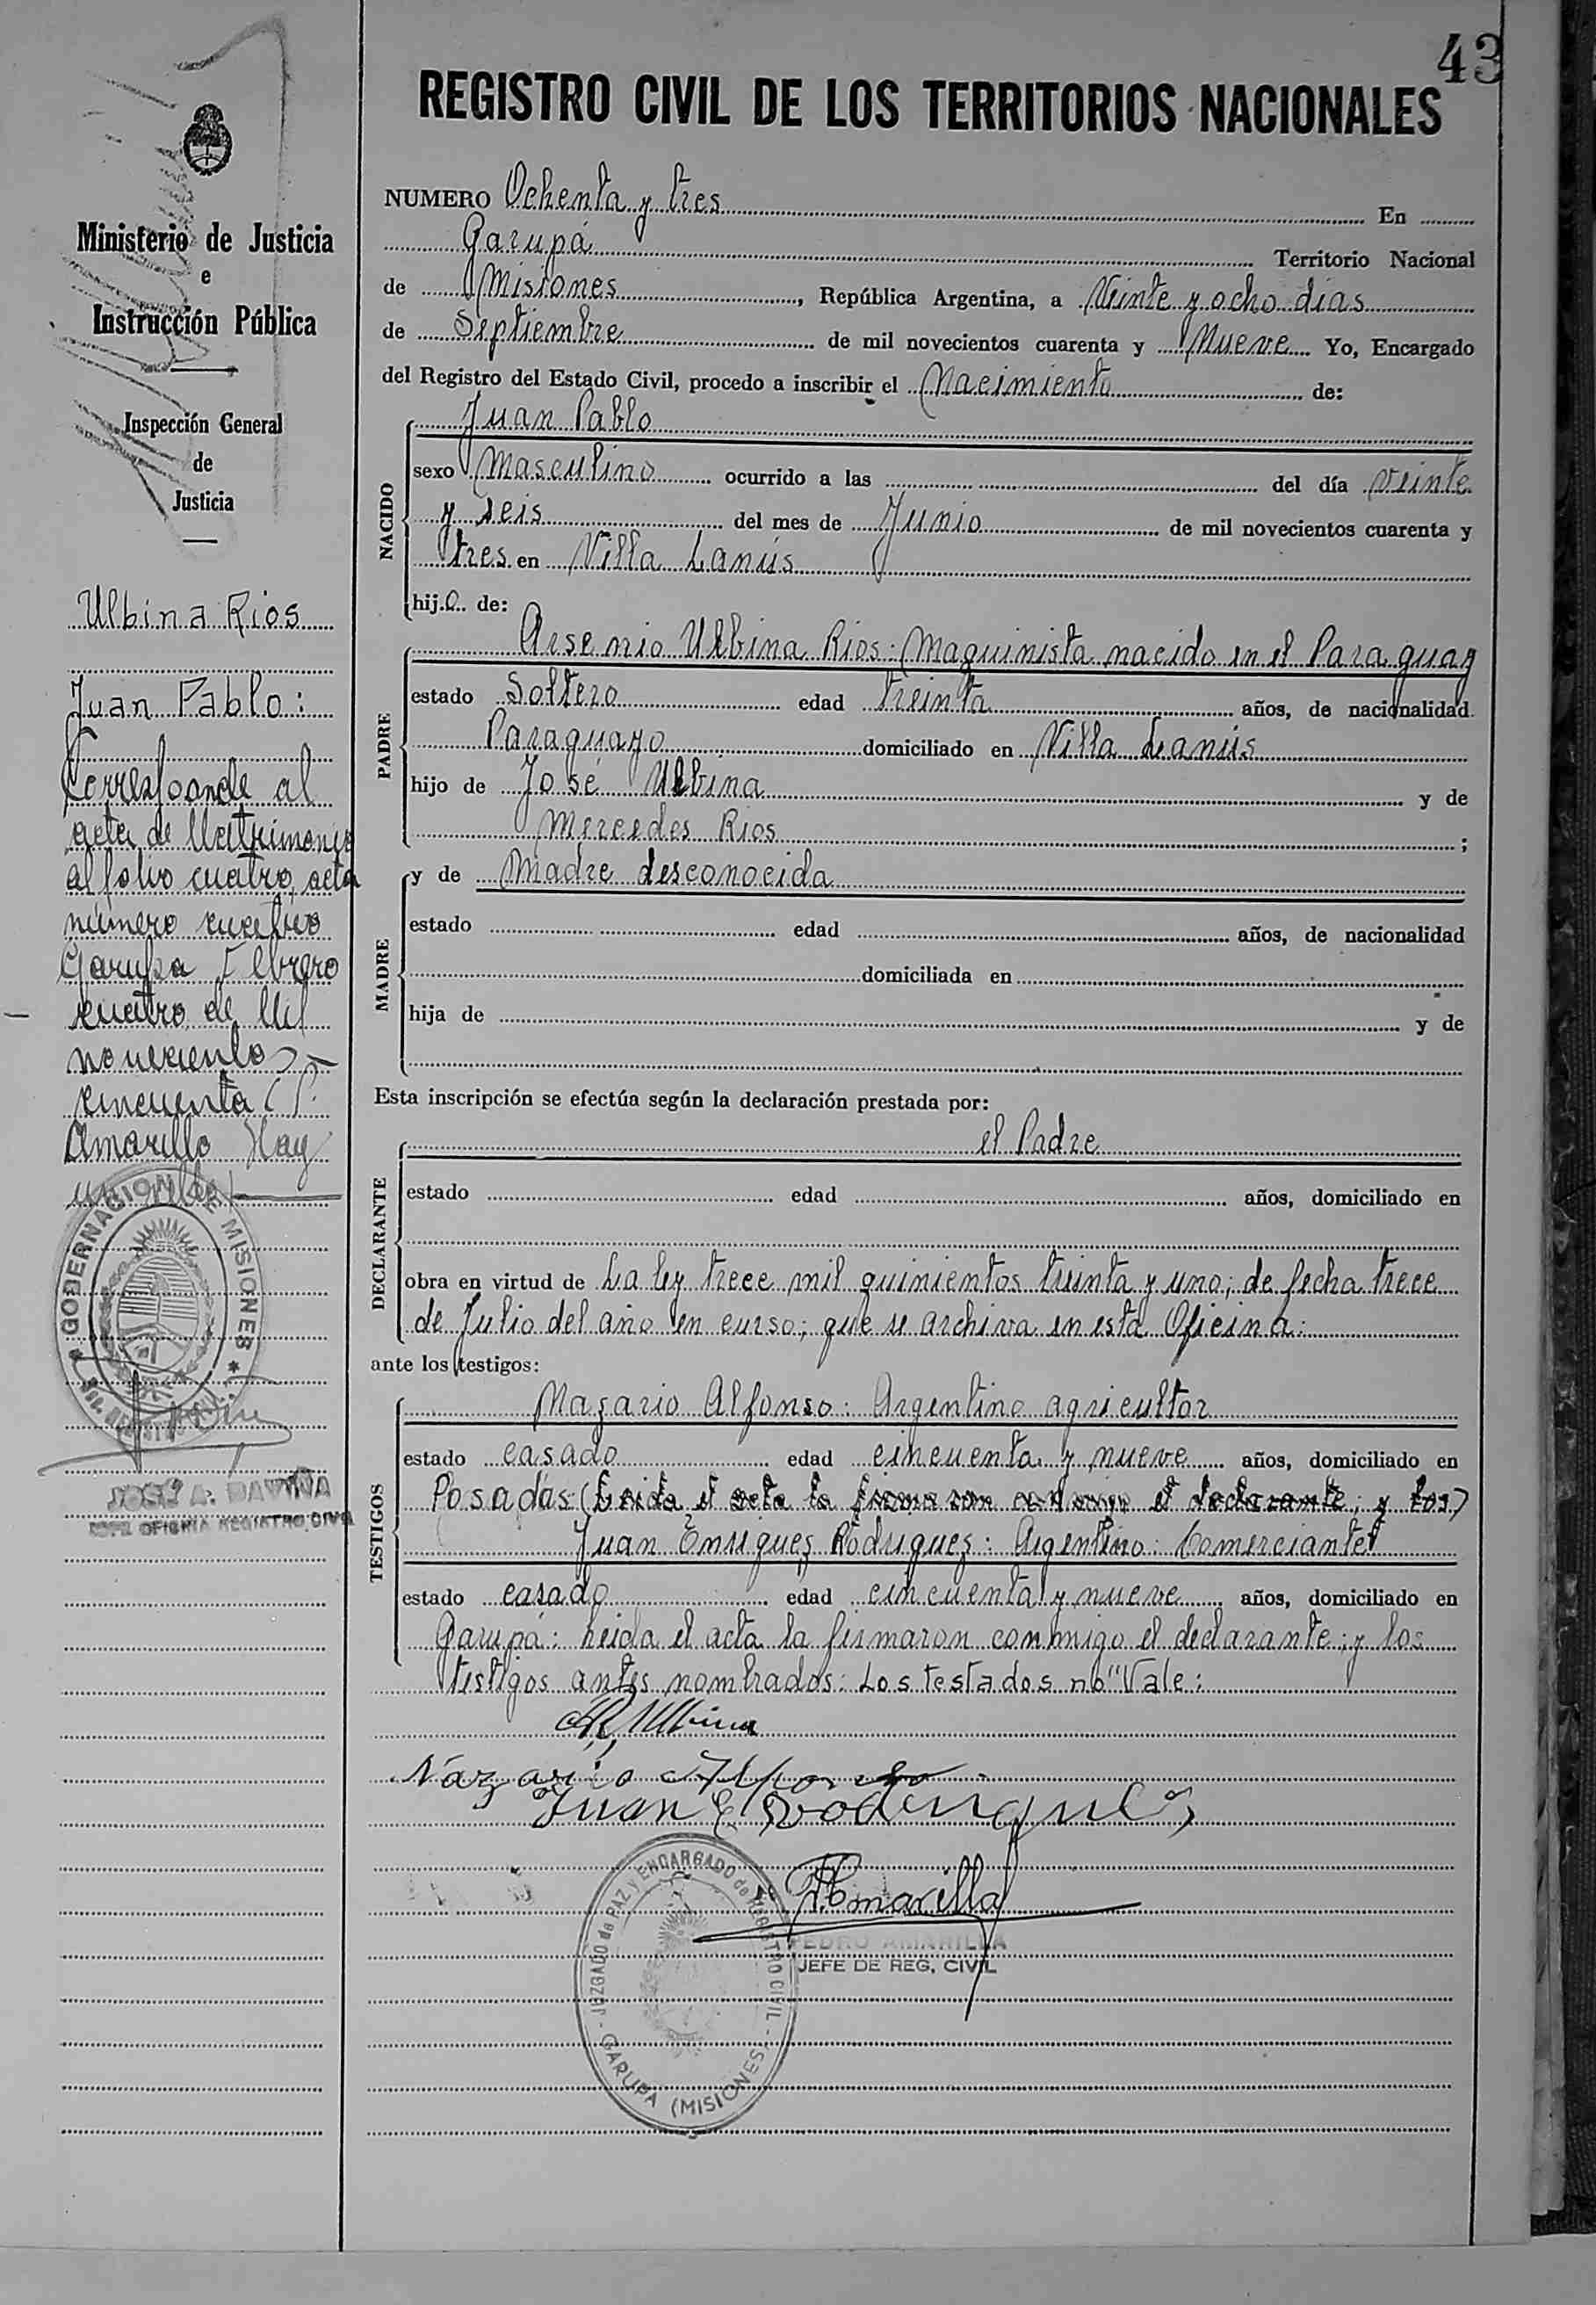 43
REGISTRO CIVIL DE LOS TERRITORIOS NACIONALES
Ministerio de Justicia
e
Instrucción Pública
Inspección General
de
Justicia
Ulbina Rios
Juan Pablo:
Corresponde al
acta de Matrimonio
al folio cuatro, acta
número cuatro
Garupa Febrero
cuatro de Mil
novecientos
cincuenta P.
Amarilla Hay
un sello
GOBERNACION DE MISIONES
JOSÉ A. DAVIÑA
JEFE OFICINA REGISTRO CIVIL
NUMERO Ochenta y tres En
Garupá Territorio Nacional
de Misiones, República Argentina, a Veinte y ocho días
de Septiembre de mil novecientos cuarenta y Nueve Yo, Encargado
del Registro del Estado Civil, procedo a inscribir el Nacimiento de:
NACIDO
Juan Pablo
sexo Masculino ocurrido a las del día veinte
y seis del mes de Junio de mil novecientos cuarenta y
tres en Villa Lanús
hij.o. de:
PADRE
Arsenio Ulbina Rios: Maquinista nacido en el Paraguay
estado Soltero edad treinta años, de nacionalidad
Paraguayo domiciliado en Villa Lanús
hijo de José Ulbina y de
Mercedes Rios ;
MADRE
y de Madre desconocida
estado edad años, de nacionalidad
domiciliada en
hija de y de
Esta inscripción se efectúa según la declaración prestada por:
DECLARANTE
el Padre
estado edad años, domiciliado en
obra en virtud de La ley trece mil quinientos treinta y uno; de fecha trece
de Julio del año en curso; que se archiva en esta Oficina:
ante los testigos:
TESTIGOS
Nazario Alfonso: Argentino agricultor
estado casado edad cincuenta y nueve años, domiciliado en
Posadas (Leida el acta la firmaron conmigo el declarante; y los)
Juan Enriquez Rodriguez: Argentino: Comerciante
estado casado edad cincuenta y nueve años, domiciliado en
Garupá: Leida el acta la firmaron conmigo el declarante; y los
testigos antes nombrados: Los testados no "Vale:
A R Ulbina
Nazario Alfonso
Juan E Rodriguez
P. Amarilla
PEDRO AMARILLA
JEFE DE REG. CIVIL
JUZGADO de PAZ y ENCARGADO de REGISTRO CIVIL - GARUPA (MISIONES) -